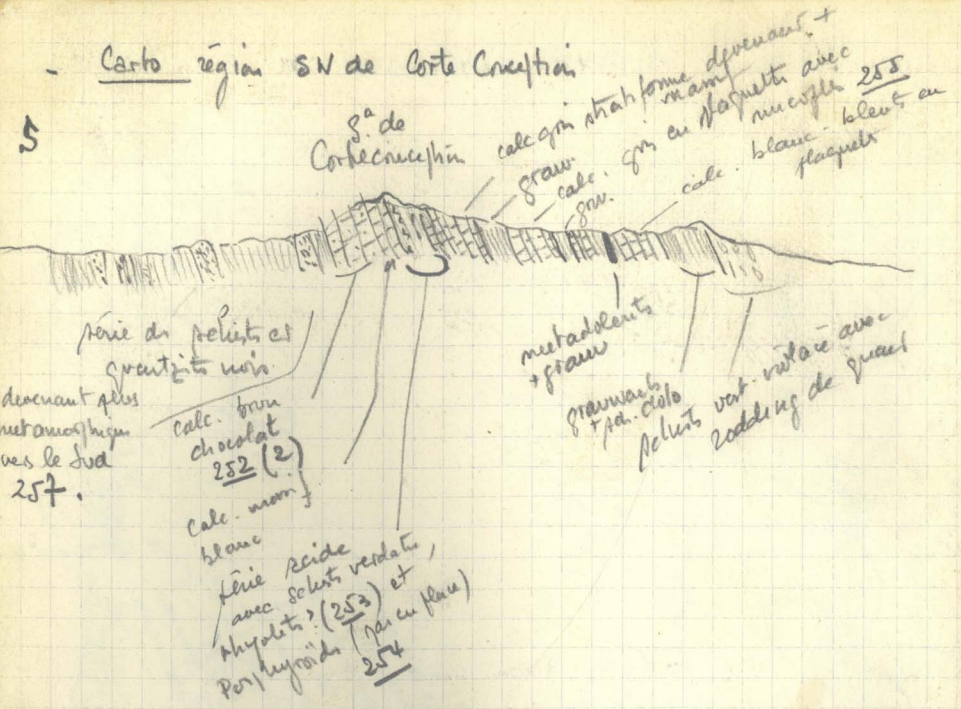 - Carto région SW de Corte Conceptión
S
Sa de
Corteconceptión
calc gris stratiforme devenant +
massif
grauw.
calc. gris en plaquettes avec
255
grw.
calc. blanc-bleuté en
plaquettes
série de schistes et
quartzites noirs
devenant plus
métamorphiques
vers le Sud
257.
calc. brun
chocolat
252 (2)
calc. massif
blanc
série acide
avec schistes verdâtres,
rhyolites? (253) et
Porphyroïdes (pas en place)
254
metadolerites
+ grauw
grauwacke
+ sch. chlo
schistes vert-violacé avec
rodding de quartz